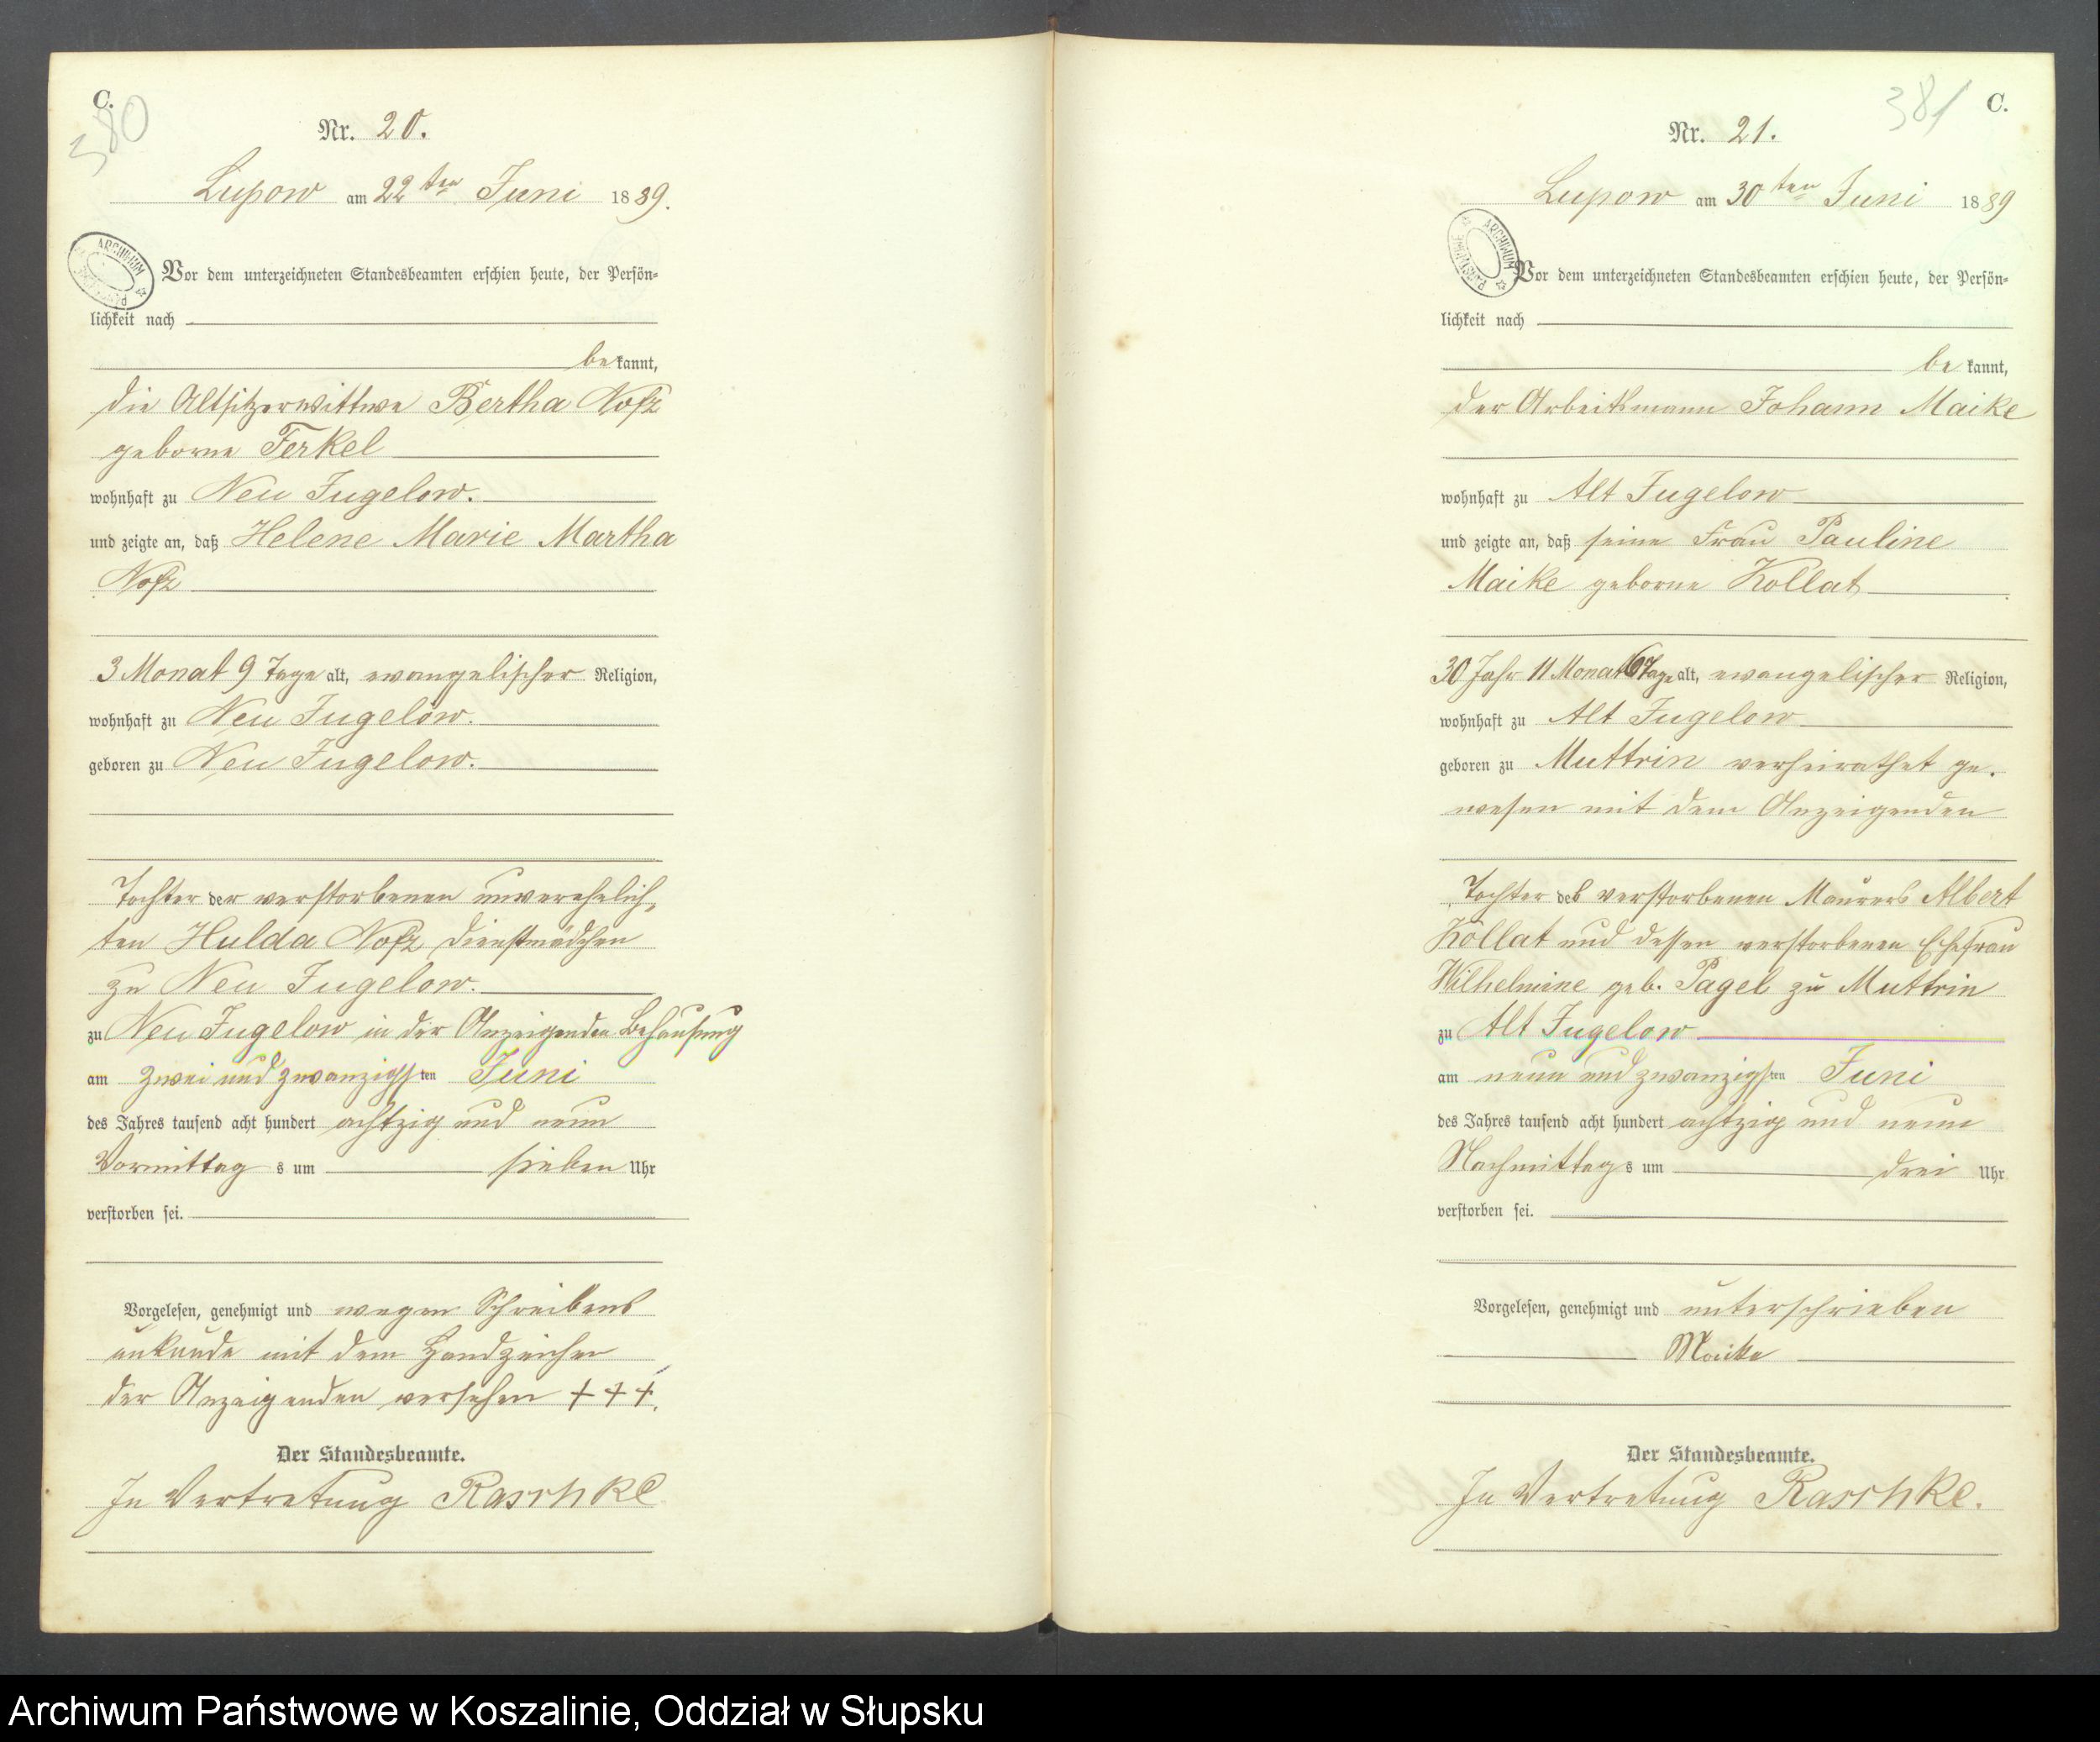 C.
380
Nr. 20.
Lupow am 22ten Juni 1889.
ARCHIWUM
Vor dem unterzeichneten Standesbeamten erschien heute, der Persön-
lichkeit nach
be kannt,
die Altsitzerwittwe Bertha Nofz
geborne Ferkel
wohnhaft zu Neu Jugelow.
und zeigte an, daß Helene Marie Martha
Nofz
3 Monat 9 Tage alt, evangelischer Religion,
wohnhaft zu Neu Jugelow.
geboren zu Neu Jugelow.
Tochter der verstorbenen unverehelich-
ten Hulda Nofz Dienstmädchen
zu Neu Jugelow.
zu Neu Jugelow in der Anzeigenden Behausung
am zwei und zwanzigsten Juni
des Jahres tausend acht hundert achtzig und neun
Vormittag s um sieben Uhr
verstorben sei.
Vorgelesen, genehmigt und wegen Schreibens
unkunde mit dem Handzeichen
der Anzeigenden versehen + + +.
Der Standesbeamte.
In Vertretung Raschke
381
C.
Nr. 21.
Lupow am 30ten Juni 1889
ARCHIWUM PAŃSTWOWE
Vor dem unterzeichneten Standesbeamten erschien heute, der Persön-
lichkeit nach
be kannt,
der Arbeitsmann Johann Maike
wohnhaft zu Alt Jugelow
und zeigte an, daß seine Frau Pauline
Maike geborne Kollat
30 Jahr 11 Monat Tage alt, evangelischer Religion,
wohnhaft zu Alt Jugelow
geboren zu Muttrin verheirathet ge-
wesen mit dem Anzeigenden
Tochter des verstorbenen Maurers Albert
Kollat und dessen verstorbenen Ehefrau
Wilhelmine geb. Pagel zu Muttrin
zu Alt Jugelow
am neun und zwanzigsten Juni
des Jahres tausend acht hundert achtzig und neun
Nachmittag s um drei Uhr
verstorben sei.
Vorgelesen, genehmigt und unterschrieben
Maike
Der Standesbeamte.
In Vertretung Raschke.
Archiwum Państwowe w Koszalinie, Oddział w Słupsku